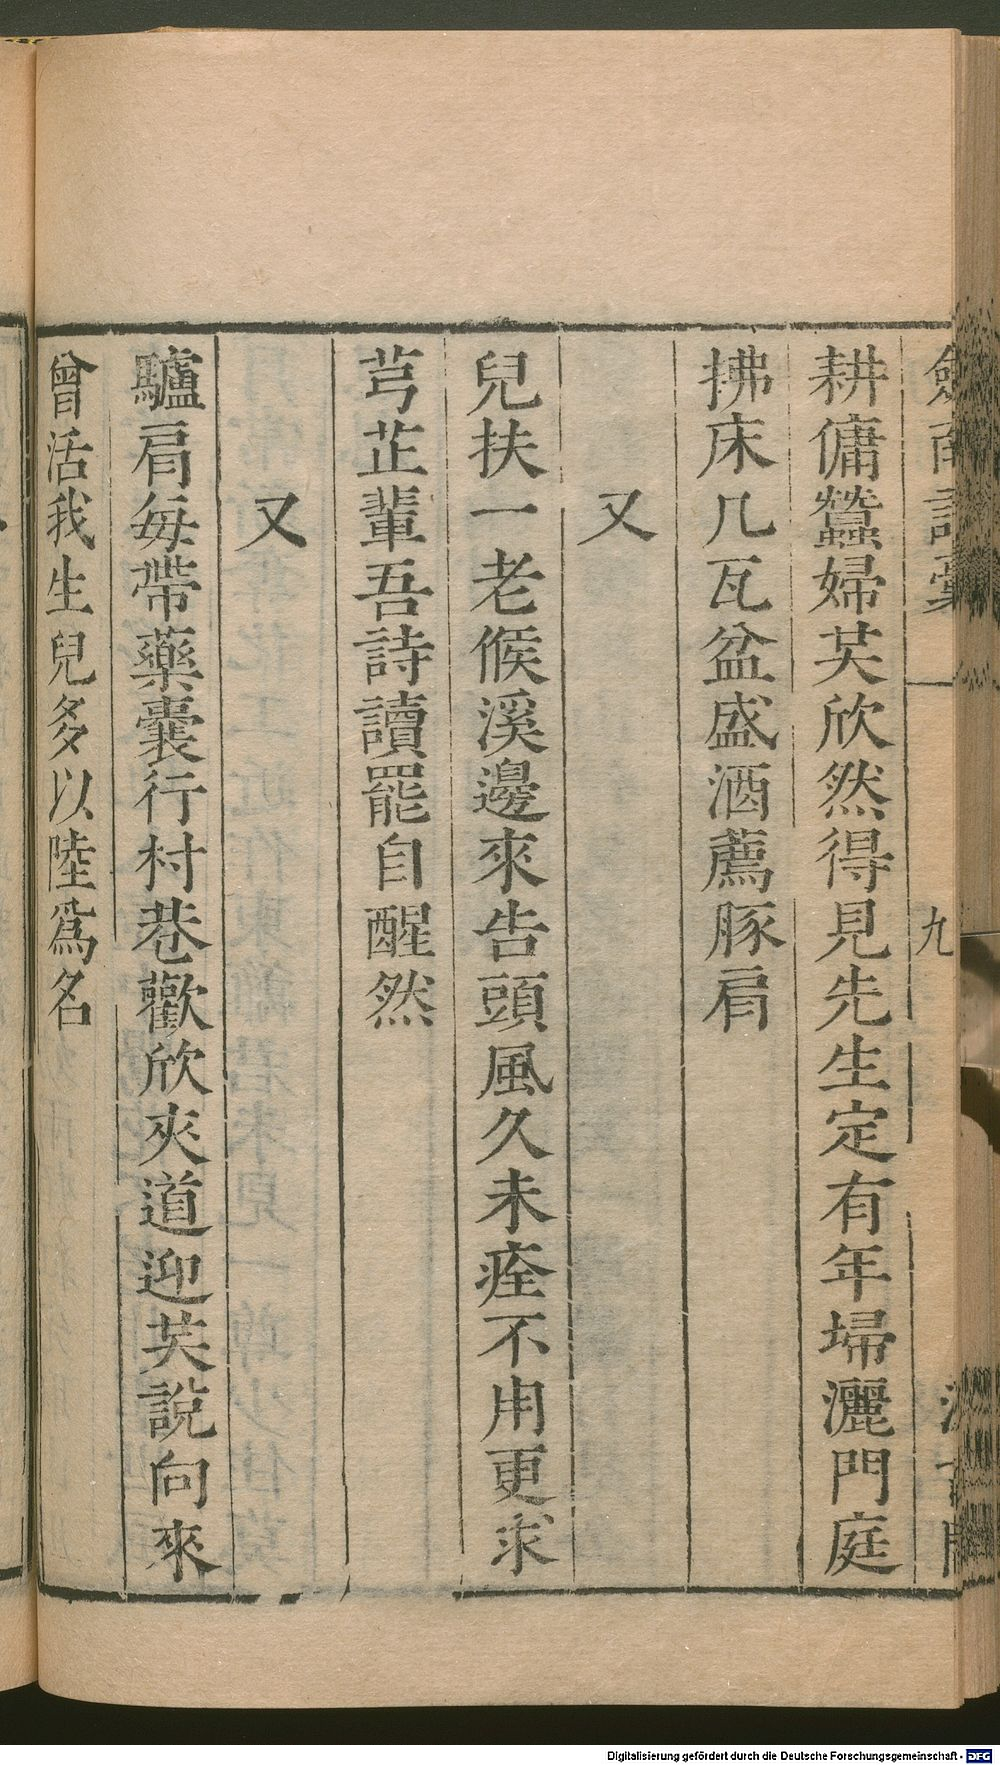 劍南詩稾
九
耕傭蠶婦共欣然得見先生定有年埽灑門庭
拂床几瓦盆盛酒薦豚肩
又
兒扶一老候溪邊來告頭風久未痊不用更求
芎芷輩吾詩讀罷自醒然
又
驢肩每帶藥囊行村巷歡欣夾道迎共說向來
曾活我生兒多以陸爲名
Digitalisierung gefördert durch die Deutsche Forschungsgemeinschaft - DFG